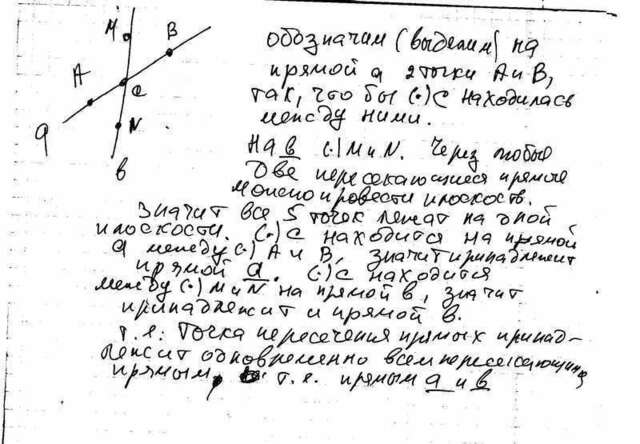 М
В
А
С
N
а
в
обозначим (выделим) на
прямой а 2 точки А и В,
так, что бы (•) С находилась
между ними.
На в (•) М и N. Через любые
две пересекающиеся прямые
можно провести плоскость.
Значит все 5 точек лежат на одной
плоскости. (•) С находится на прямой
а между (•) А и В, значит принадлежит
прямой а. (•) С находится
между (•) М и N на прямой в, значит
принадлежит и прямой в.
т.е: Точка пересечения прямых принад-
лежит одновременно всем пересекающимся
прямым, т.е. прямым а и в